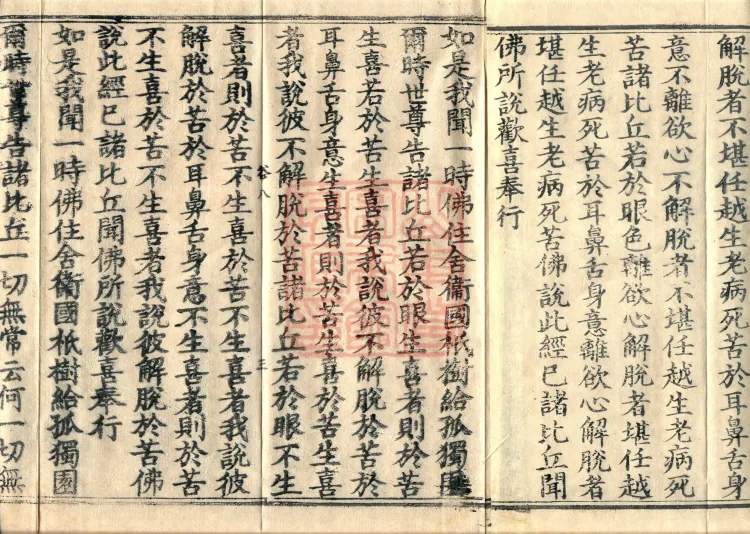 解脫者不堪任越生老病死苦於耳鼻舌身
意不離欲心不解脫者不堪任越生老病死
苦諸比丘若於眼色離欲心解脫者堪任越
生老病死苦於耳鼻舌身意離欲心解脫者
堪任越生老病死苦佛說此經已諸比丘聞
佛所說歡喜奉行
如是我聞一時佛住舍衞國祇樹給孤獨園
爾時世尊告諸比丘若於眼生喜者則於苦
生喜若於苦生喜者我說彼不解脫於苦於
耳鼻舌身意生喜者則於苦生喜於苦生喜
者我說彼不解脫於苦諸比丘若於眼不生
卷八
三
喜者則於苦不生喜於苦不生喜者我說彼
解脫於苦於耳鼻舌身意不生喜者則於苦
不生喜於苦不生喜者我說彼解脫於苦佛
說此經已諸比丘聞佛所說歡喜奉行
如是我聞一時佛住舍衞國祇樹給孤獨園
爾時世尊告諸比丘一切無常云何一切無